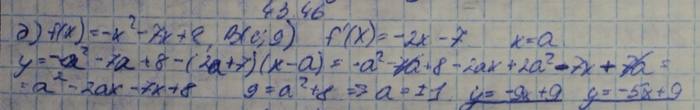 43,46
д) f(x)=-x²-7x+8, B(0;9) f'(x)=-2x-7 x=a
y=-a²-7a+8-(2a+7)(x-a)=-a²-7a+8-2ax+2a²-7x+7a=
=a²-2ax-7x+8 9=a²+8 => a=±1 y=-9x+9 y=-5x+9